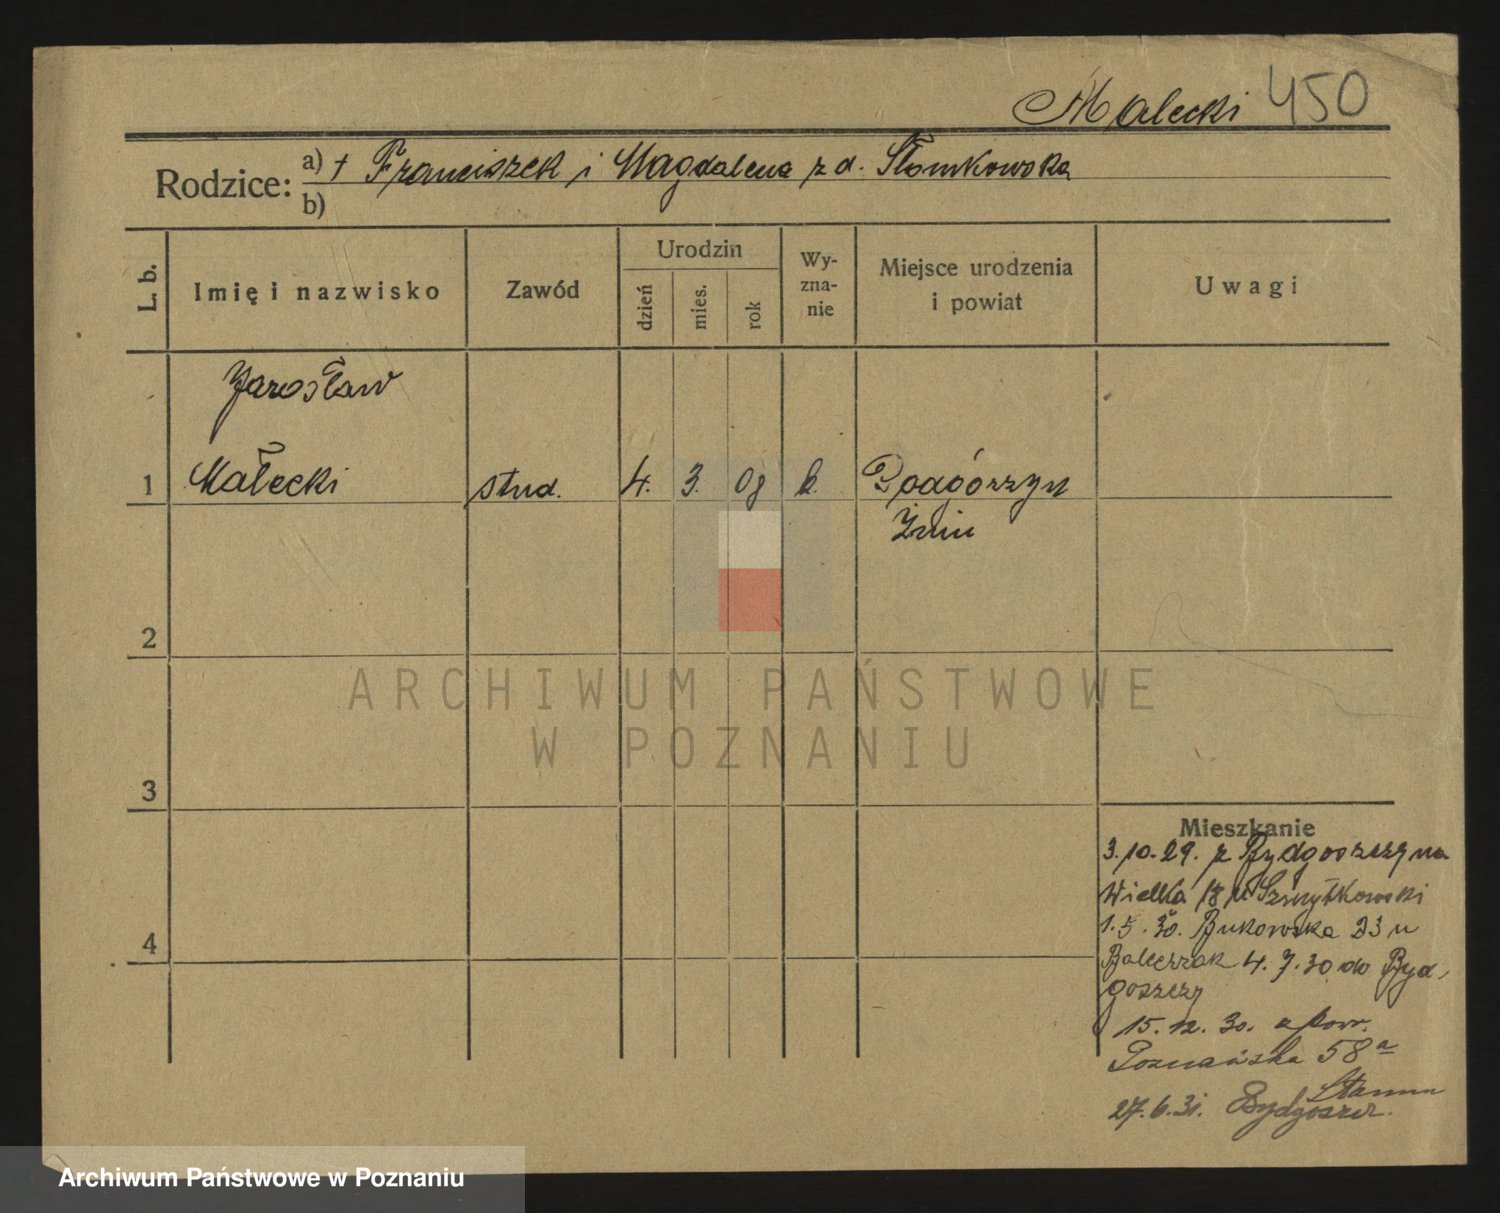 Małecki 450
Rodzice: a) + Franciszek i Magdalena z d. Słomkowska
b)
L. b. Imię i nazwisko Zawód Urodzin dzień mies. rok Wy-zna-nie Miejsce urodzenia i powiat Uwagi
Jarosław
1 Małecki stud. 4. 3. 08 k. Podgórzyn
Żnin
2
ARCHIWUM PAŃSTWOWE
W POZNANIU
3
Mieszkanie
3.10.29. z Bydgoszczy na
Wielka 18 u Szmytkowski
1.5.30. Bukowska 23 u
4
Balcerzak 4.7.30 do Byd-
goszczy
15.12.30. z pow.
Poznańska 58a
27.6.31. Bydgoszcz.
Archiwum Państwowe w Poznaniu